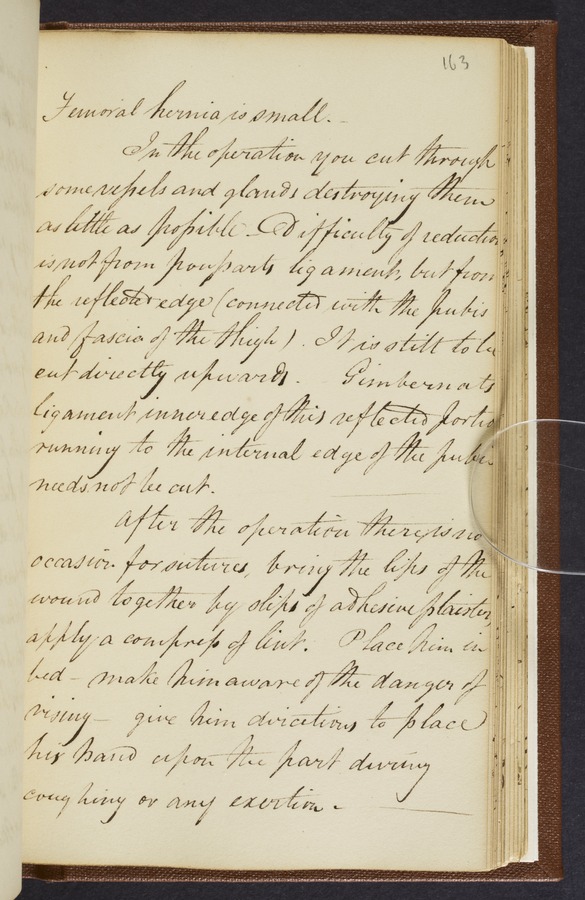 163
Femoral hernia is small.—
In the operation you cut through
some vessels and glands destroying them
as little as possible — Difficulty of reduction
is not from pouparts ligament, but from
the reflected edge (connected with the pubis
and fascia of the thigh). It is still to be
cut directly upwards. Gimbernats
ligament inner edge of this reflected portio
running to the internal edge of the pubis
needs not be cut.
After the operation there is no
occasion for sutures, bring the lips of the
wound together by slips of adhesive plaister
apply a compress of lint. Place him in
bed – make him aware of the danger of
rising – give him directions to place
his hand upon the part during
coughing or any exertion –